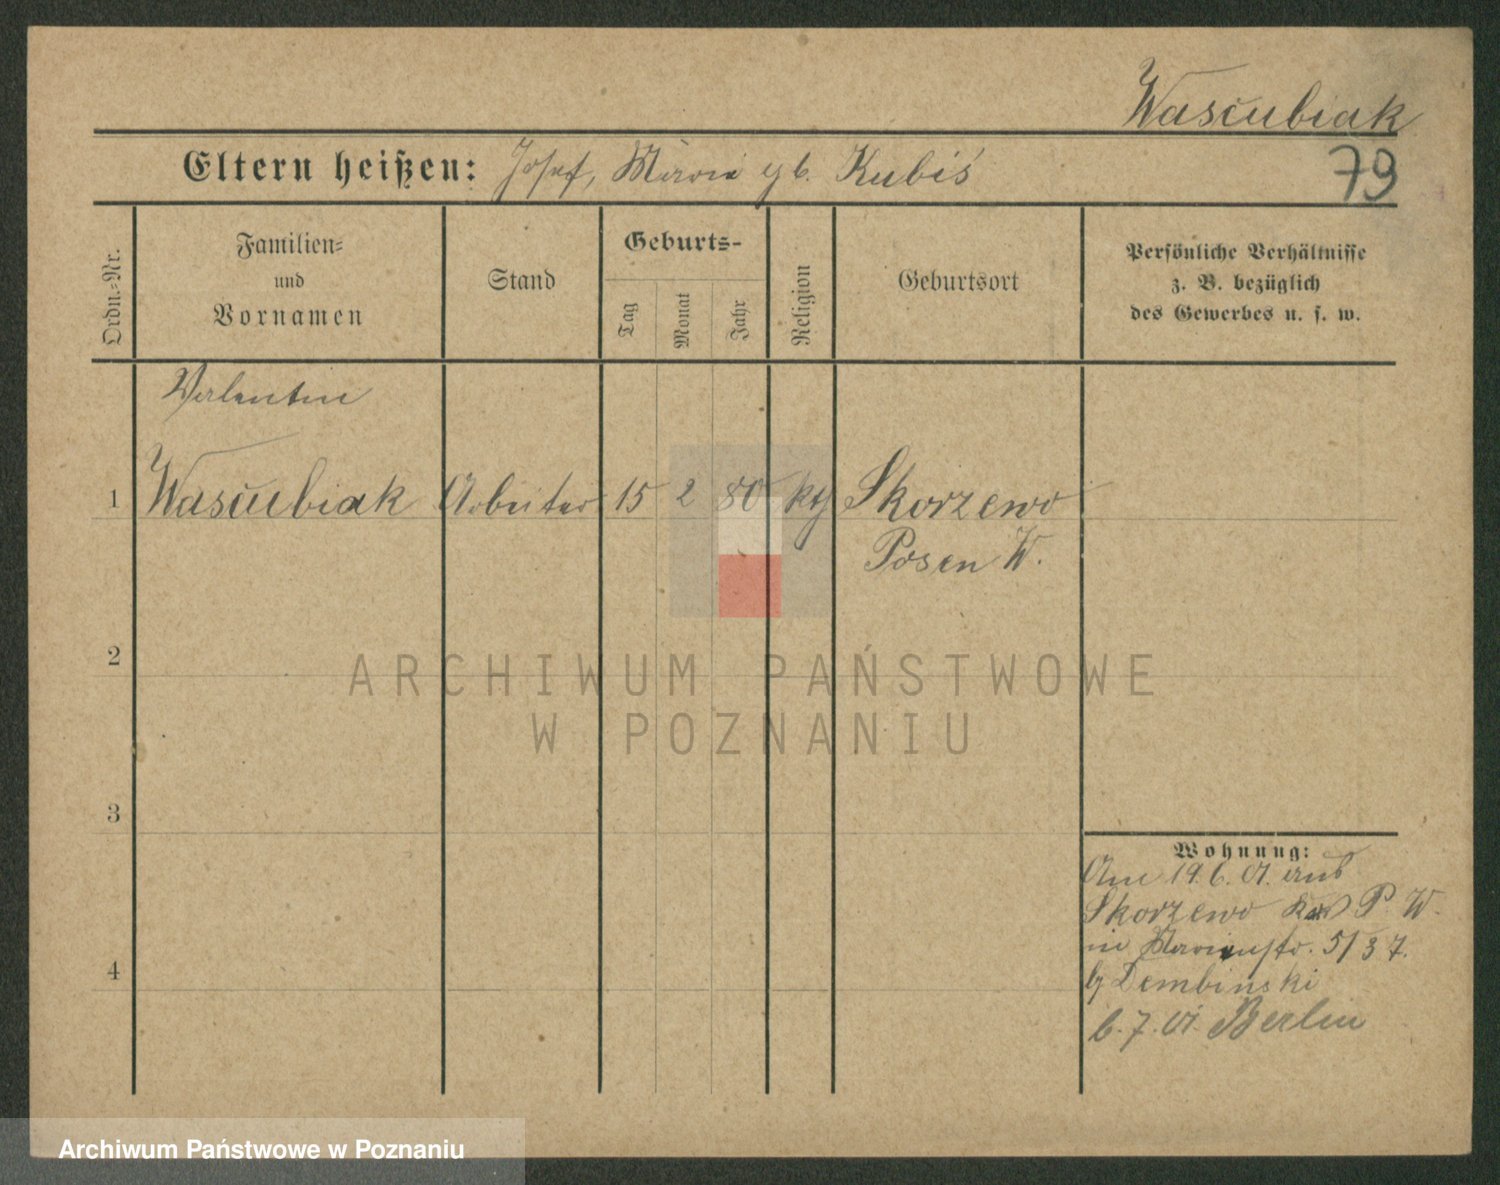 Wasĭubiak
79
Eltern heißen: Josef, Marie gb. Kubiś
Ordn.-Nr.
Familien-
und
Vornamen
Stand
Geburts-
Tag
Monat
Jahr
Religion
Geburtsort
Persönliche Verhältnisse
z. B. bezüglich
des Gewerbes u. s. w.
Valentin
1 Wasĭubiak Arbeiter 15 2 80 kth Skorzewo
Posen W.
2
3
4
Wohnung:
Am 19. 6. 01. aus
Skorzewo P. W.
in Marienstr. 5/37.
b/ Dembinski
6. 7. 01. Berlin
ARCHIWUM PAŃSTWOWE
W POZNANIU
Archiwum Państwowe w Poznaniu